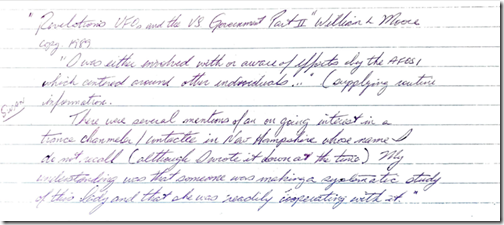 "Revelations UFOs and the US Government Part II" William L Moore
copy 1989
"I was either involved with or aware of efforts by the AFOSI
which centered around other individuals..." (supplying routine
information.
There were several mentions of an on going interest in a
trance channeler/contactee in New Hampshire whose name I
do not recall (although I wrote it down at the time) My
understanding was that someone was making a systematic study
of this lady and that she was readily cooperating with it."